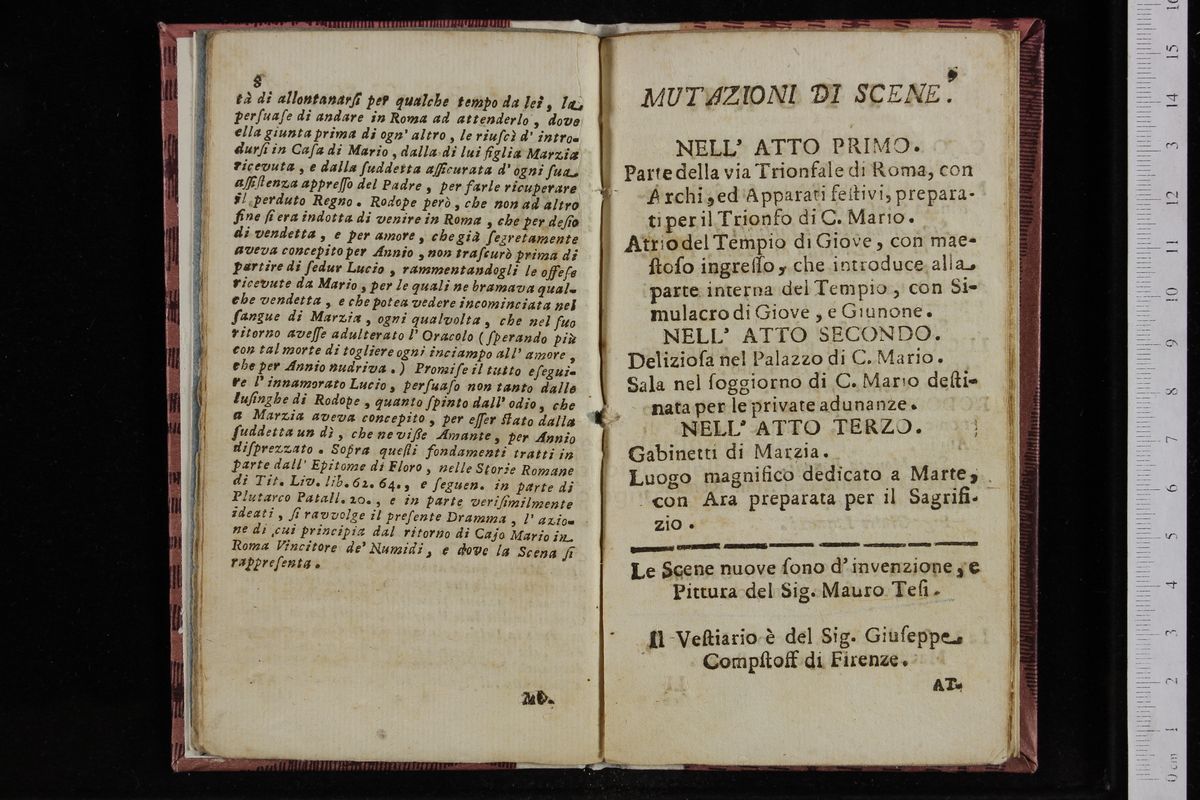 8
tà di allontanarſi per qualche tempo da lei, la
perſuaſe di andare in Roma ad attenderlo, dove
ella giunta prima di ogn' altro, le riuſcì d' intro-
durſi in Caſa di Mario, dalla di lui figlia Marzia
ricevuta, e dalla ſuddetta aſſicurata d' ogni ſua
aſſiſtenza appreſſo del Padre, per farle ricuperare
il perduto Regno. Rodope però, che non ad altro
fine ſi era indotta di venire in Roma, che per deſio
di vendetta, e per amore, che già ſegretamente
aveva concepito per Annio, non traſcurò prima di
partire di ſedur Lucio, rammentandogli le offeſe
ricevute da Mario, per le quali ne bramava qual-
che vendetta, e che potea vedere incominciata nel
ſangue di Marzia, ogni qualvolta, che nel ſuo
ritorno aveſſe adulterato l' Oracolo (ſperando più
con tal morte di togliere ogni inciampo all' amore,
che per Annio nudriva.) Promiſe il tutto eſegui-
re l' innamorato Lucio, perſuaſo non tanto dalle
luſinghe di Rodope, quanto ſpinto dall' odio, che
a Marzia aveva concepito, per eſſer ſtato dalla
ſuddetta un dì, che ne viſſe Amante, per Annio
diſprezzato. Sopra queſti fondamenti tratti in
parte dall' Epitome di Floro, nelle Storie Romane
di Tit. Liv. lib. 62. 64., e ſeguen. in parte di
Plutarco Patall. 20., e in parte veriſimilmente
ideati, ſi ravvolge il preſente Dramma, l' azio-
ne di cui principia dal ritorno di Cajo Mario in
Roma Vincitore de' Numidi, e dove la Scena ſi
rappreſenta.
MU-
9
MUTAZIONI DI SCENE.
NELL' ATTO PRIMO.
Parte della via Trionfale di Roma, con
Archi, ed Apparati feſtivi, prepara-
ti per il Trionfo di C. Mario.
Atrio del Tempio di Giove, con mae-
ſtoſo ingreſſo, che introduce alla
parte interna del Tempio, con Si-
mulacro di Giove, e Giunone.
NELL' ATTO SECONDO.
Delizioſa nel Palazzo di C. Mario.
Sala nel ſoggiorno di C. Mario deſti-
nata per le private adunanze.
NELL' ATTO TERZO.
Gabinetti di Marzia.
Luogo magnifico dedicato a Marte,
con Ara preparata per il Sagrifi-
zio.
Le Scene nuove ſono d' invenzione, e
Pittura del Sig. Mauro Teſi.
Il Veſtiario è del Sig. Giuſeppe
Compſtoff di Firenze.
AT-
0 cm 1 2 3 4 5 6 7 8 9 10 11 12 13 14 15 16